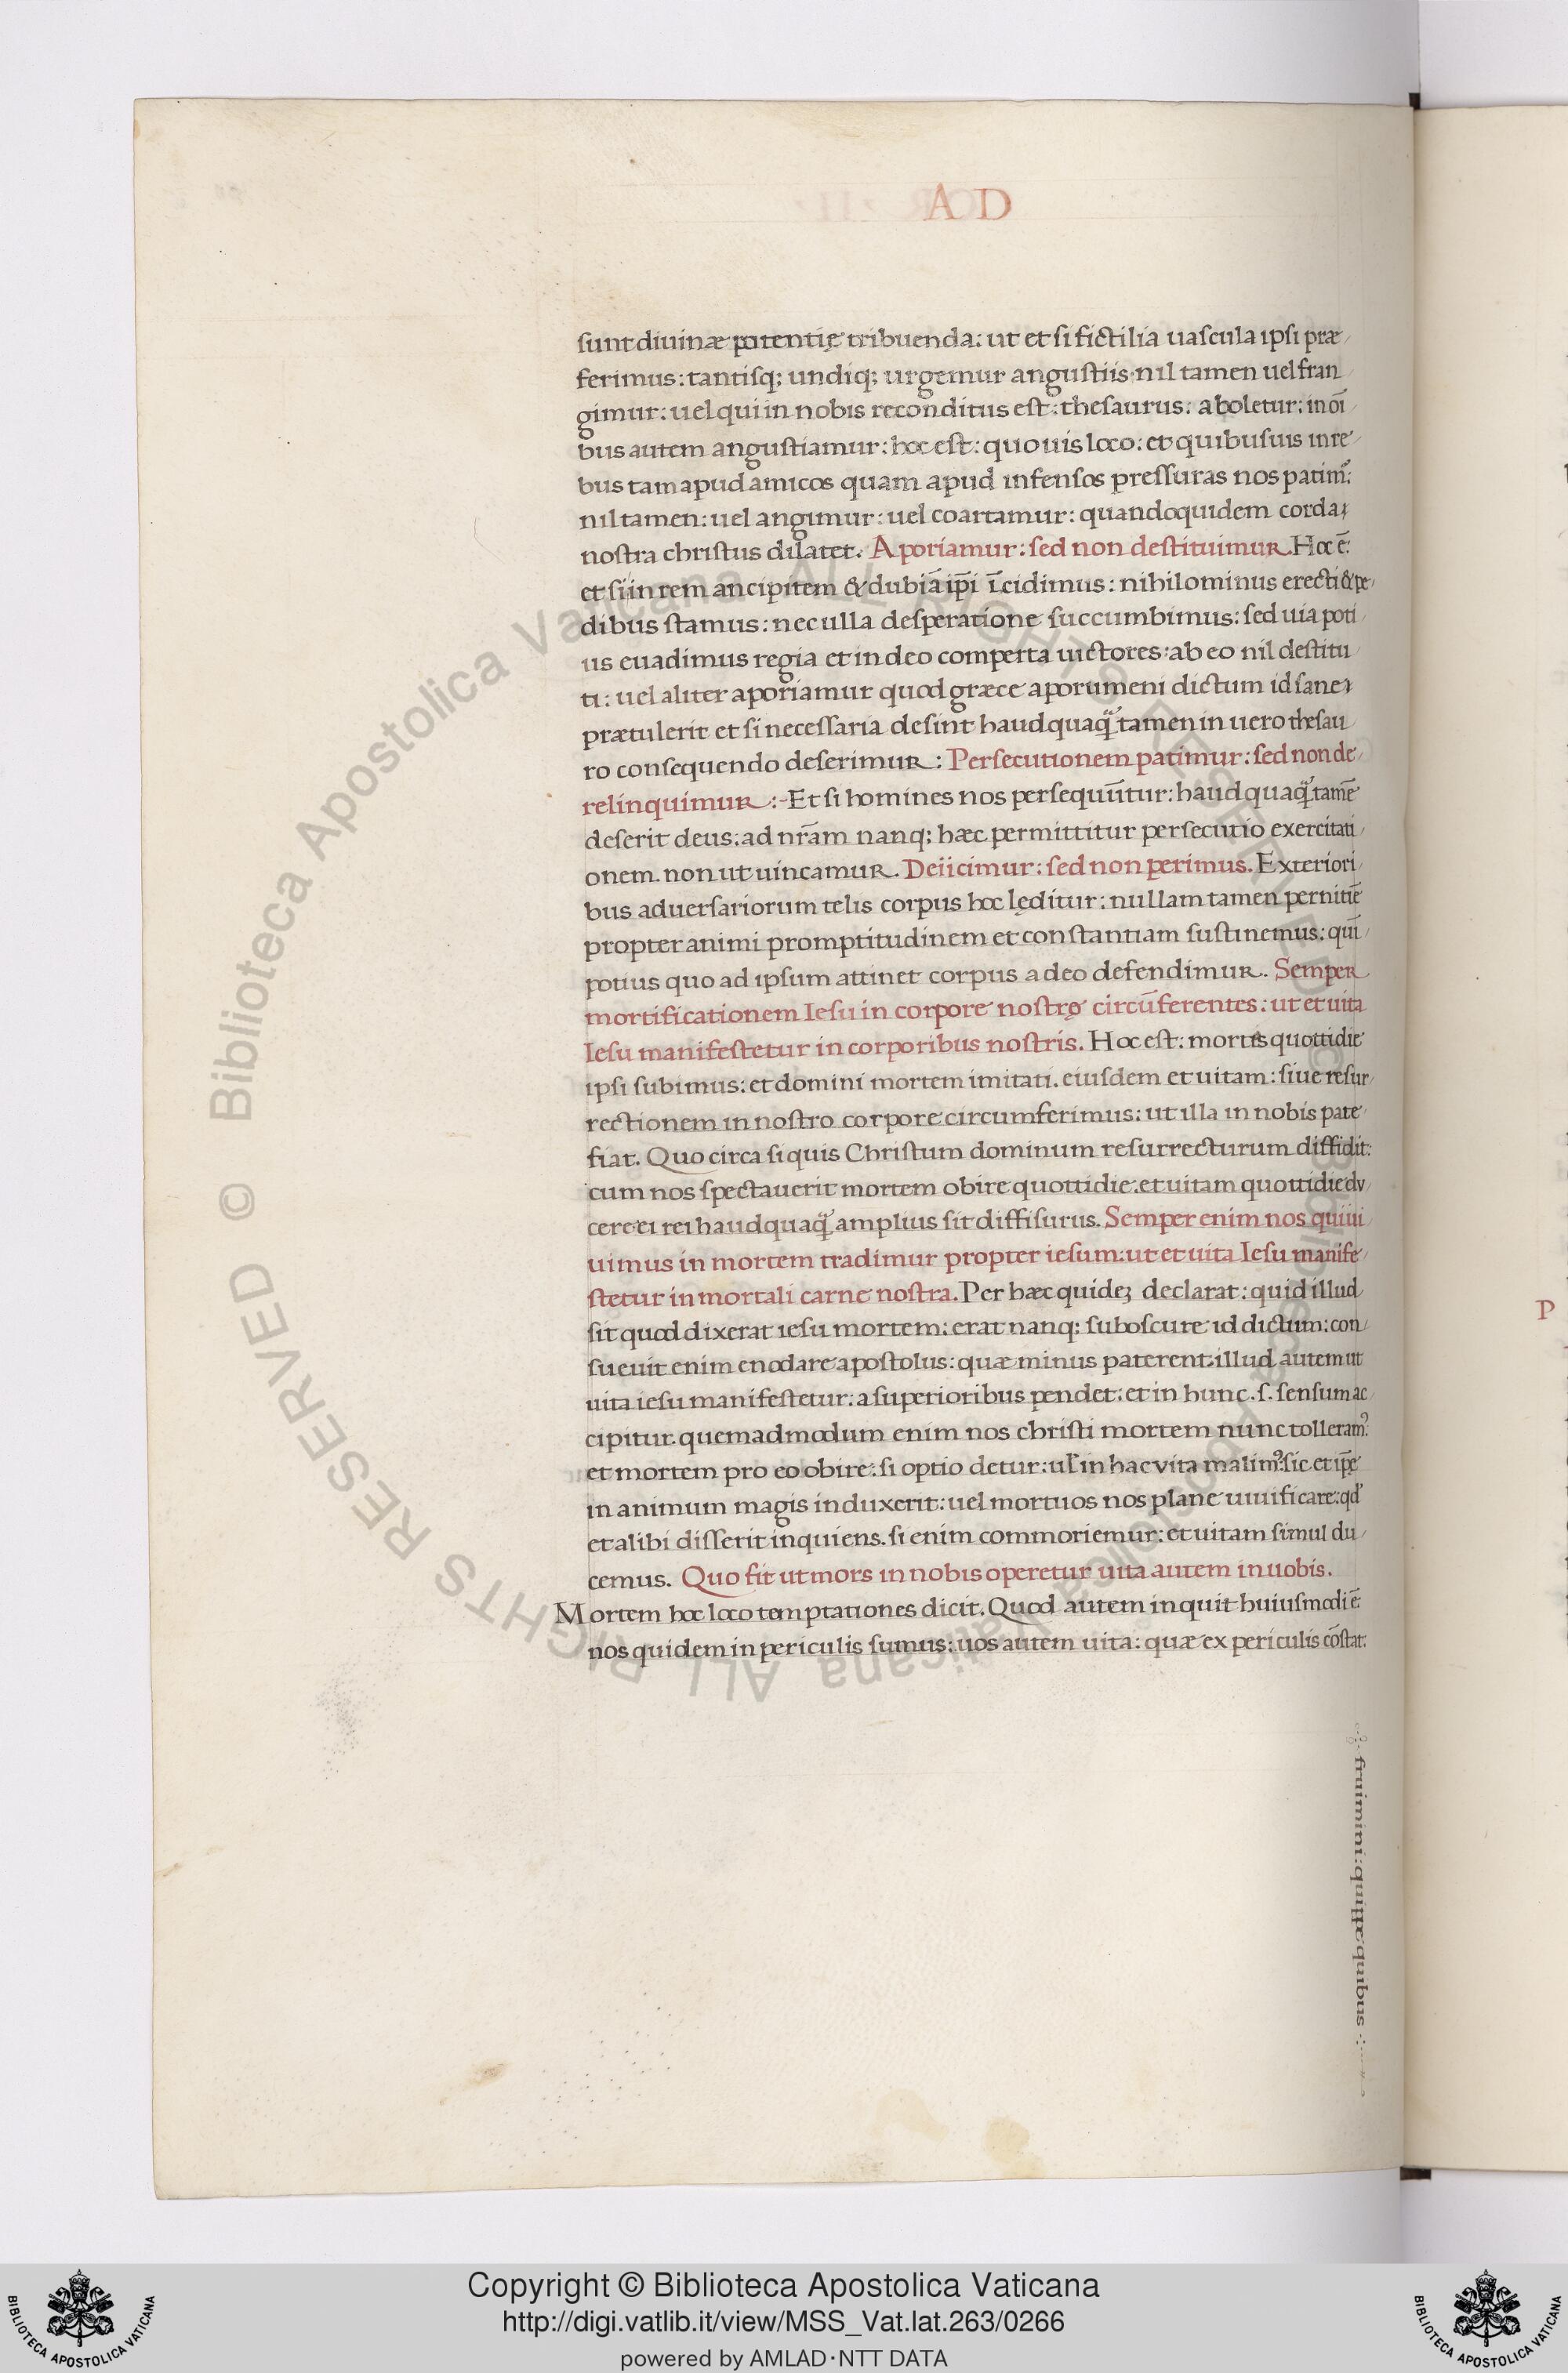 A D
sunt diuinæ potentię tribuenda: ut et si fictilia uascula ipsi præ
ferimus: tantisq; undiq; urgemur angustiis nil tamen uel fran
gimur: uel qui in nobis reconditus est: thesaurus: aboletur: in oī
bus autem angustiamur: hoc est: quouis loco: et quibusuis in re
bus tam apud amicos quam apud infensos pressuras nos patimꝰ:
nil tamen: uel angimur: uel coartamur: quandoquidem corda
nostra christus dilatet. Aporiamur: sed non destituimur. Hoc ē:
et si in rem ancipitem & dubiā ip̄i īcidimus: nihilominus erecti & pe
dibus stamus: nec ulla desperatione succumbimus: sed uia poti
us euadimus regia et in deo comperta uictores: ab eo nil destitu
ti: uel aliter aporiamur quod græce aporumeni dictum id sane
prætulerit et si necessaria desint haudquaq̃ tamen in uero thesau
ro consequendo deserimur: Persecutionem patimur: sed non de
relinquimur:- Et si homines nos persequūtur: haudquaq̃ tamē
deserit deus: ad nr̄am nanq; hæc permittitur persecutio exercitati
onem. non ut uincamur. Deiicimur: sed non perimus. Exteriori
bus aduersariorum telis corpus hoc lęditur: nullam tamen pernitiē
propter animi promptitudinem et constantiam sustinemus: quī
potius quo ad ipsum attinet corpus a deo defendimur. Semper
mortificationem Iesu in corpore nostro circūferentes: ut et uita
Iesu manifestetur in corporibus nostris. Hoc est: mortes quottidie
ipsi subimus: et domini mortem imitati. eiusdem et uitam: siue resur
rectionem in nostro corpore circumferimus: ut illa in nobis pate
fiat. Quo circa si quis Christum dominum resurrecturum diffidit:
cum nos spectauerit mortem obire quottidie: et uitam quottidie du
cere: ei rei haudquaq̃ amplius sit diffisurus. Semper enim nos qui ui
uimus in mortem tradimur propter iesum: ut et uita Iesu manife
stetur in mortali carne nostra. Per hæc quideȝ declarat: quid illud
sit quod dixerat iesu mortem: erat nanq; suboscure id dictum: con
sueuit enim enodare apostolus: quæ minus paterent. illud autem ut
uita iesu manifestetur: a superioribus pendet: et in hunc .s. sensum ac
cipitur. quemadmodum enim nos christi mortem nunc tolleramꝰ:
et mortem pro eo obire: si optio detur: uł in hac uita malimꝰ: sic et ip̄e
in animum magis induxerit: uel mortuos nos plane uiuificare: qd'
et alibi disserit inquiens. si enim commoriemur: et uitam simul du
cemus. Quo fit ut mors in nobis operetur uita autem in uobis.
Mortem hoc loco temptationes dicit. Quod autem inquit huiusmodi ē:
nos quidem in periculis sumus: uos autem uita: quæ ex periculis cōstat:
fruimini: quippe quibus
P
© Biblioteca Apostolica Vaticana ALL RIGHTS RESERVED
© Biblioteca Apostolica Vaticana ALL RIGHTS RESERVED
Copyright © Biblioteca Apostolica Vaticana
http://digi.vatlib.it/view/MSS_Vat.lat.263/0266
powered by AMLAD·NTT DATA
BIBLIOTECA APOSTOLICA VATICANA
BIBLIOTECA APOSTOLICA VATICANA